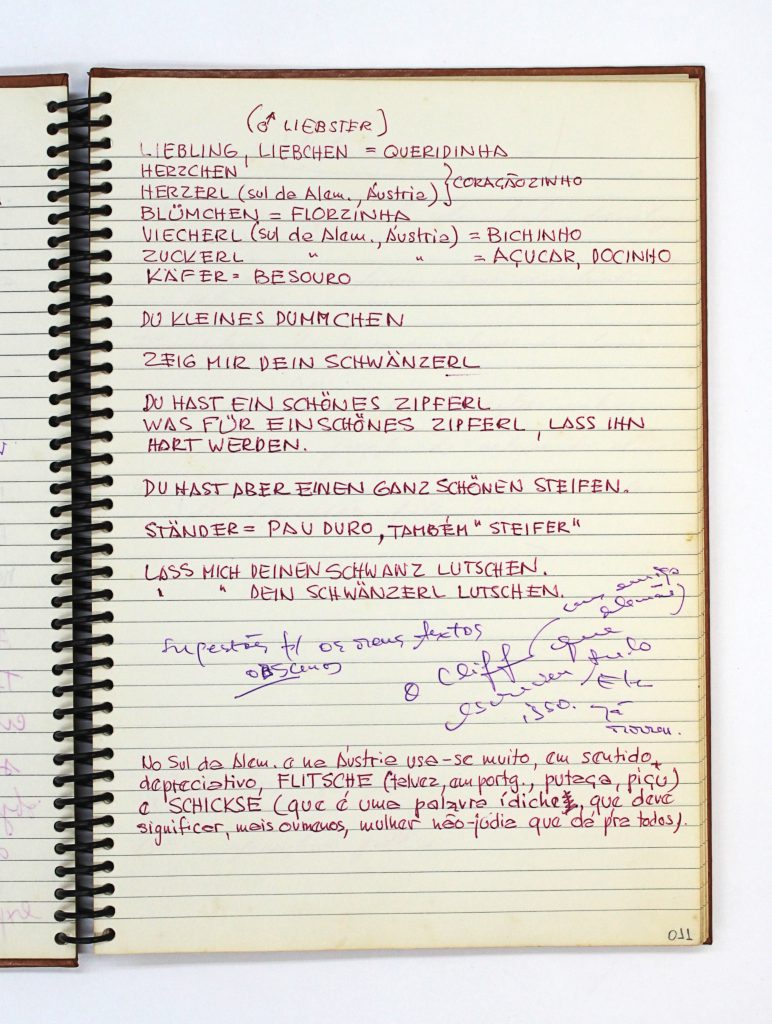 (♂ LIEBSTER)
LIEBLING, LIEBCHEN = QUERIDINHA
HERZCHEN
HERZERL (sul da Alem., Áustria) } CORAÇÃOZINHO
BLÜMCHEN = FLORZINHA
VIECHERL (sul da Alem., Áustria) = BICHINHO
ZUCKERL " " = AÇUCAR, DOCINHO
KÄFER = BESOURO
DU KLEINES DUMMCHEN
ZEIG MIR DEIN SCHWÄNZERL
DU HAST EIN SCHÖNES ZIPFERL
WAS FÜR EIN SCHÖNES ZIPFERL, LASS IHN
HART WERDEN.
DU HAST ABER EINEN GANZ SCHÖNEN STEIFEN.
STÄNDER = PAU DURO, TAMBÉM "STEIFER"
LASS MICH DEINEN SCHWANZ LUTSCHEN.
" " DEIN SCHWÄNZERL LUTSCHEN.
Sugestões p/ os meus textos
obscenos
O Cliff (um amigo
alemão) que
escreveu tudo
isso. Ele
já
morreu.
No Sul da Alem. e na Áustria usa-se muito, em sentido
depreciativo, FLITSCHE (talvez, em portg., putaça, piçu)
e SCHICKSE (que é uma palavra ídiche, que deve
significar, mais ou menos, mulher não-judia que dá pra todos).
011